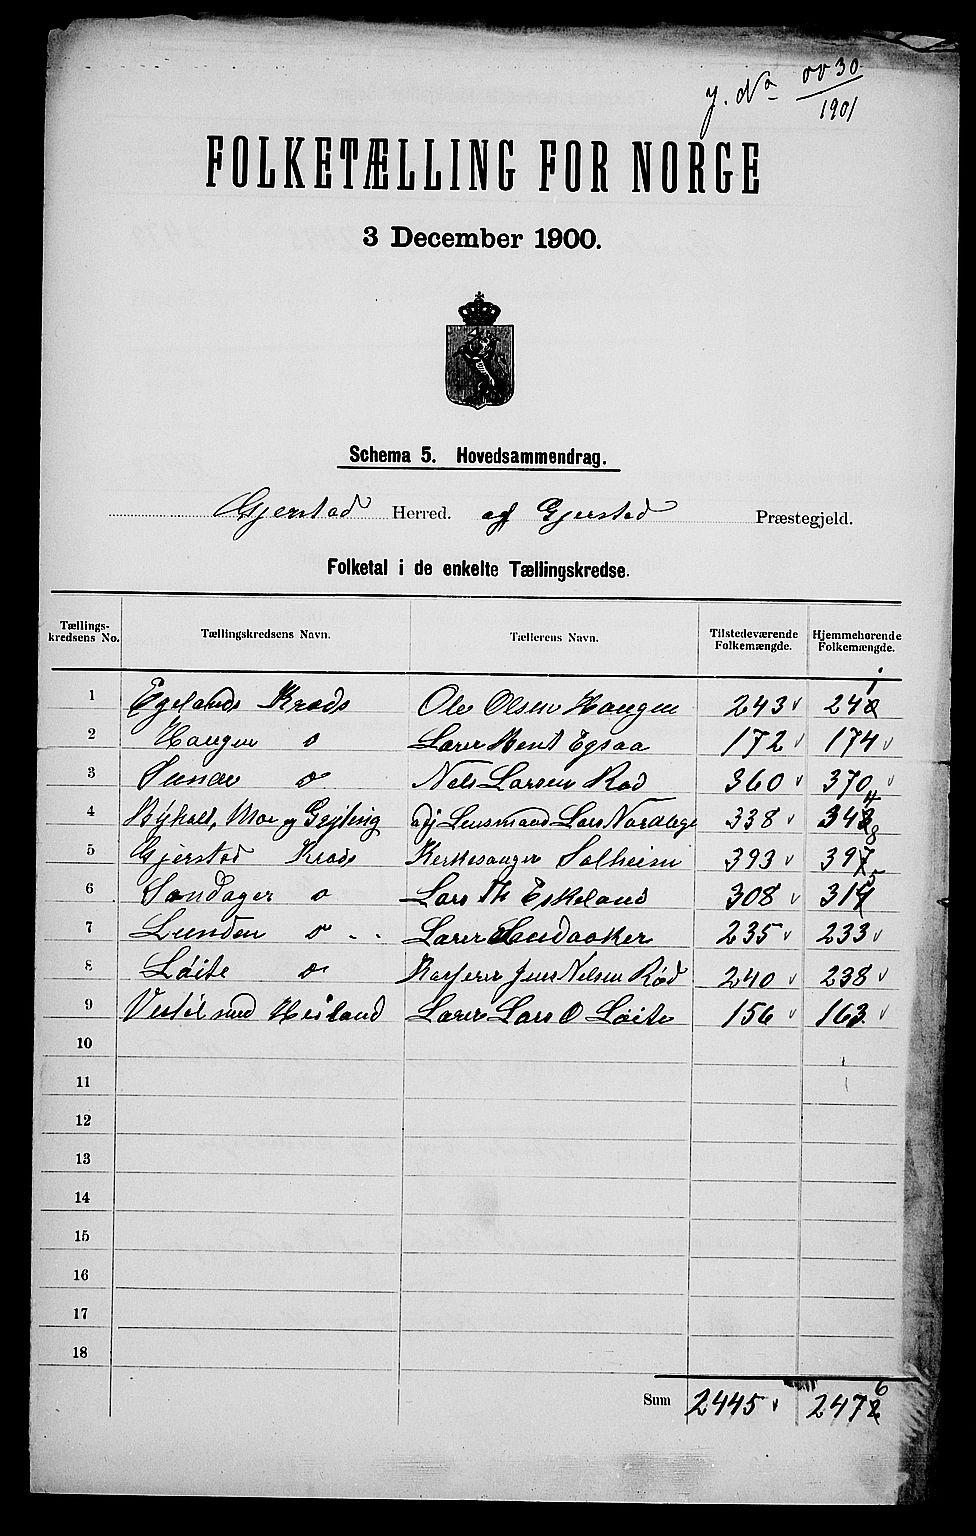 J. No 0030
1901
FOLKETÆLLING FOR NORGE
3 December 1900.
Schema 5. Hovedsammendrag.
Gjerstad Herred. af Gjerstad Præstegjeld.
Folketal i de enkelte Tællingskredse.
Tællingskredsens No. Tællingskredsens Navn. Tællerens Navn. Tilstedeværende Folkemængde. Hjemmehørende Folkemængde.
1 Egelands Kreds Ole Olsen Haugen 243 241
2 Haugen o Lærer Bent Egsaa 172 174
3 Sunde o Nels Larsen Rød 360 370
4 Moe og Lensmand Lars 338 344
5 Gjerstad Kreds Kirkesanger Solheim 393 398
6 Søndager o Lars Th Eskeland 308 315
7 Lunden o Lærer 235 233
8 Løite o Jens Nelsen Rød 240 238
9 Vestøl med Heiland Lærer Lars O Løite 156 163
10
11
12
13
14
15
16
17
18
Sum 2445 2476